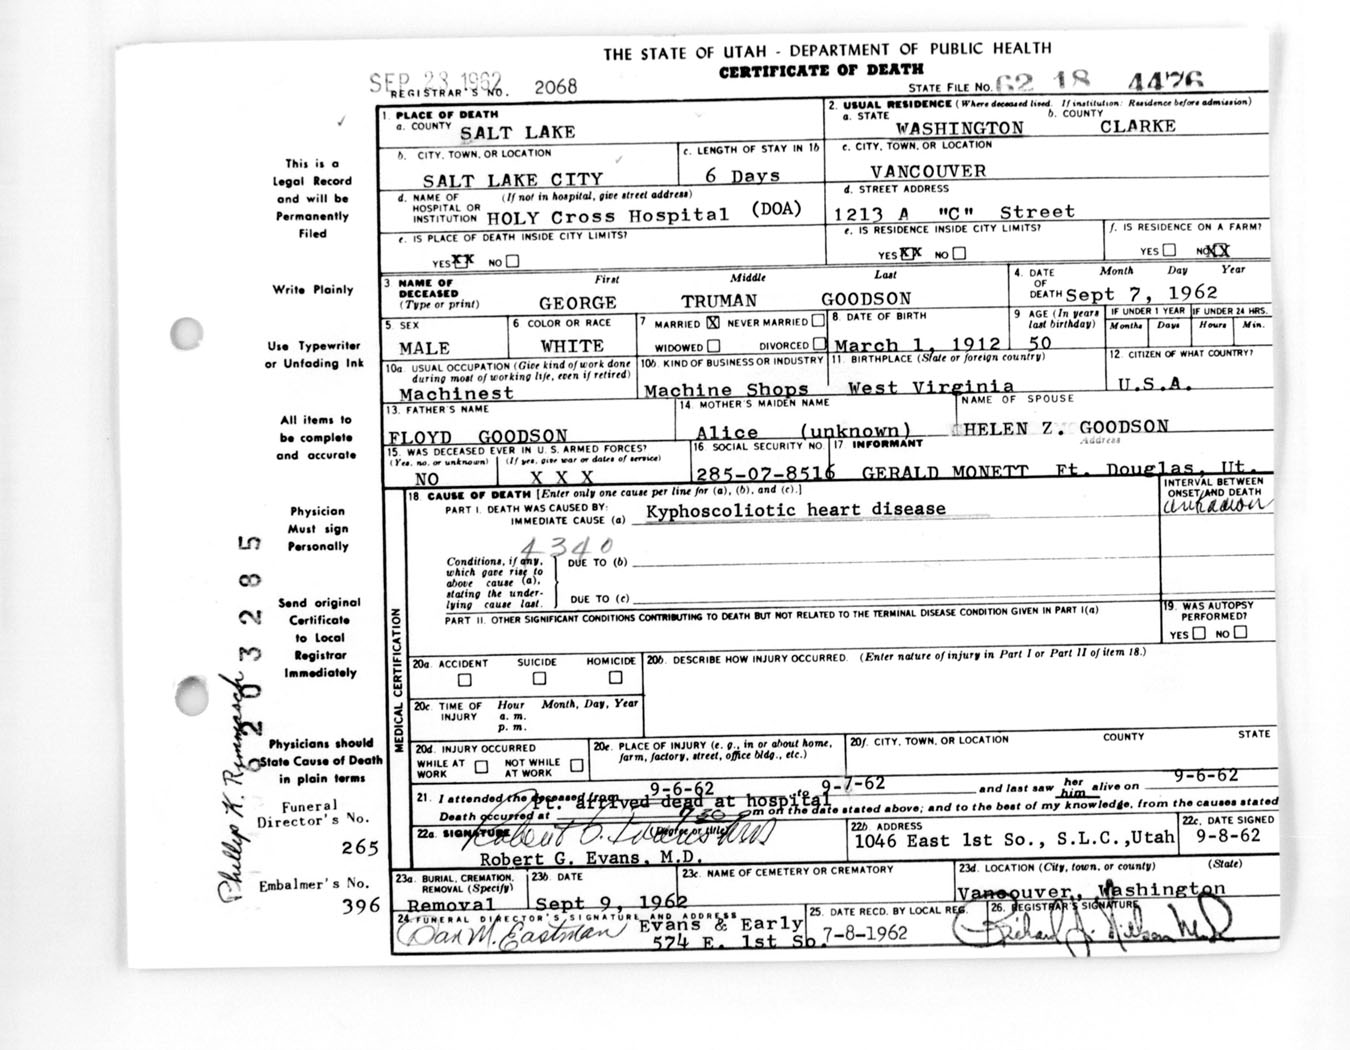 THE STATE OF UTAH - DEPARTMENT OF PUBLIC HEALTH
CERTIFICATE OF DEATH
SEP 28 1962
REGISTRAR'S NO. 2068
STATE FILE NO. 62 18 4476
1. PLACE OF DEATH
a. COUNTY SALT LAKE
2. USUAL RESIDENCE (Where deceased lived. If institution: Residence before admission)
a. STATE WASHINGTON b. COUNTY CLARKE
b. CITY, TOWN, OR LOCATION SALT LAKE CITY
c. LENGTH OF STAY IN 1b 6 Days
c. CITY, TOWN, OR LOCATION VANCOUVER
d. NAME OF HOSPITAL OR INSTITUTION (If not in hospital, give street address) HOLY Cross Hospital (DOA)
d. STREET ADDRESS 1213 A "C" Street
e. IS PLACE OF DEATH INSIDE CITY LIMITS? YES XX NO
e. IS RESIDENCE INSIDE CITY LIMITS? YES XX NO
f. IS RESIDENCE ON A FARM? YES NO XX
3 NAME OF DECEASED (Type or print) First Middle Last
GEORGE TRUMAN GOODSON
4. DATE OF DEATH Month Day Year
Sept 7, 1962
5. SEX MALE
6 COLOR OR RACE WHITE
7 MARRIED X NEVER MARRIED WIDOWED DIVORCED
8. DATE OF BIRTH March 1, 1912
9 AGE (In years last birthday) 50
IF UNDER 1 YEAR Months Days
IF UNDER 24 HRS. Hours Min.
10a. USUAL OCCUPATION (Give kind of work done during most of working life, even if retired) Machinest
10b. KIND OF BUSINESS OR INDUSTRY Machine Shops
11. BIRTHPLACE (State or foreign country) West Virginia
12. CITIZEN OF WHAT COUNTRY? U.S.A.
13. FATHER'S NAME FLOYD GOODSON
14. MOTHER'S MAIDEN NAME Alice (unknown)
NAME OF SPOUSE HELEN Z. GOODSON
15. WAS DECEASED EVER IN U.S. ARMED FORCES?
(Yes, no, or unknown) (If yes, give war or dates of service)
NO X X X
16. SOCIAL SECURITY NO. 285-07-8516
17 INFORMANT Address
GERALD MONETT Ft. Douglas, Ut.
MEDICAL CERTIFICATION
18. CAUSE OF DEATH [Enter only one cause per line for (a), (b), and (c).]
PART I. DEATH WAS CAUSED BY:
IMMEDIATE CAUSE (a) Kyphoscoliotic heart disease
INTERVAL BETWEEN ONSET AND DEATH
unknown
4340
Conditions, if any, which gave rise to above cause (a), stating the underlying cause last.
DUE TO (b)
DUE TO (c)
PART II. OTHER SIGNIFICANT CONDITIONS CONTRIBUTING TO DEATH BUT NOT RELATED TO THE TERMINAL DISEASE CONDITION GIVEN IN PART I(a)
19. WAS AUTOPSY PERFORMED?
YES NO
20a. ACCIDENT SUICIDE HOMICIDE
20b. DESCRIBE HOW INJURY OCCURRED. (Enter nature of injury in Part I or Part II of item 18.)
20c. TIME OF INJURY Hour Month, Day, Year
a. m.
p. m.
20d. INJURY OCCURRED
WHILE AT WORK NOT WHILE AT WORK
20e. PLACE OF INJURY (e. g., in or about home, farm, factory, street, office bldg., etc.)
20f. CITY, TOWN, OR LOCATION COUNTY STATE
21. I attended the deceased from 9-6-62 to 9-7-62 and last saw her him alive on 9-6-62
Pt. arrived dead at hospital
Death occurred at 930 pm on the date stated above; and to the best of my knowledge, from the causes stated
22a. SIGNATURE (Degree or title)
Robert G. Evans, M.D.
22b ADDRESS 1046 East 1st So., S.L.C., Utah
22c. DATE SIGNED 9-8-62
23a. BURIAL, CREMATION, REMOVAL (Specify) Removal
23b. DATE Sept 9, 1962
23c. NAME OF CEMETERY OR CREMATORY
23d. LOCATION (City, town, or county) (State)
Vancouver, Washington
24. FUNERAL DIRECTOR'S SIGNATURE AND ADDRESS
Dan M. Eastman Evans & Early
574 E. 1st So.
25. DATE RECD. BY LOCAL REG. 7-8-1962
26. REGISTRAR'S SIGNATURE
This is a
Legal Record
and will be
Permanently
Filed
Write Plainly
Use Typewriter
or Unfading Ink
All items to
be complete
and accurate
Physician
Must sign
Personally
Send original
Certificate
to Local
Registrar
Immediately
Physicians should
State Cause of Death
in plain terms
Funeral
Director's No.
265
Embalmer's No.
396
6203285
Phillip K. Rimmasch